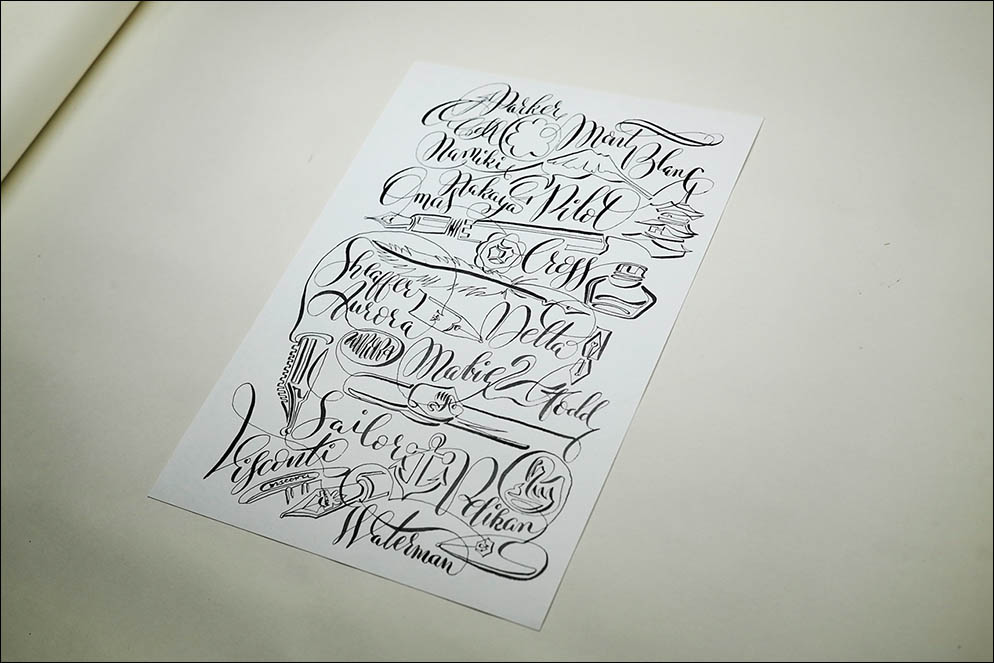 Parker
Mont Blanc
Namiki
Nakaya
Pilot
Omas
Cross
Sheaffer
Aurora
Delta
AURORA
Mabie Todd
Sailor
Visconti
Pelikan
Waterman